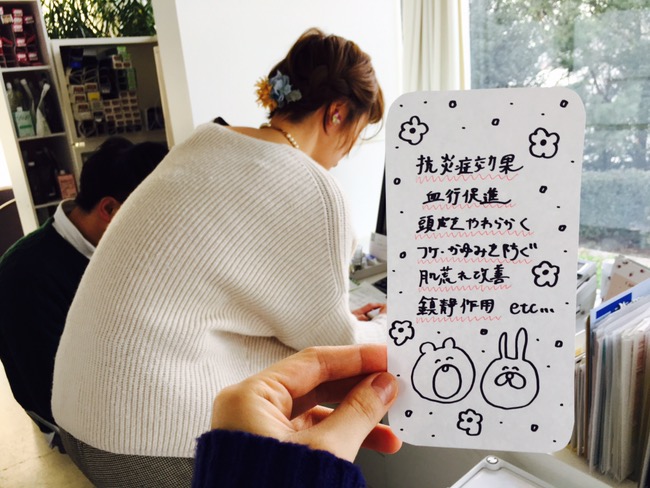 抗炎症効果
血行促進
頭皮をやわらかく
フケ・かゆみを防ぐ
肌荒れ改善
鎮静作用 etc...